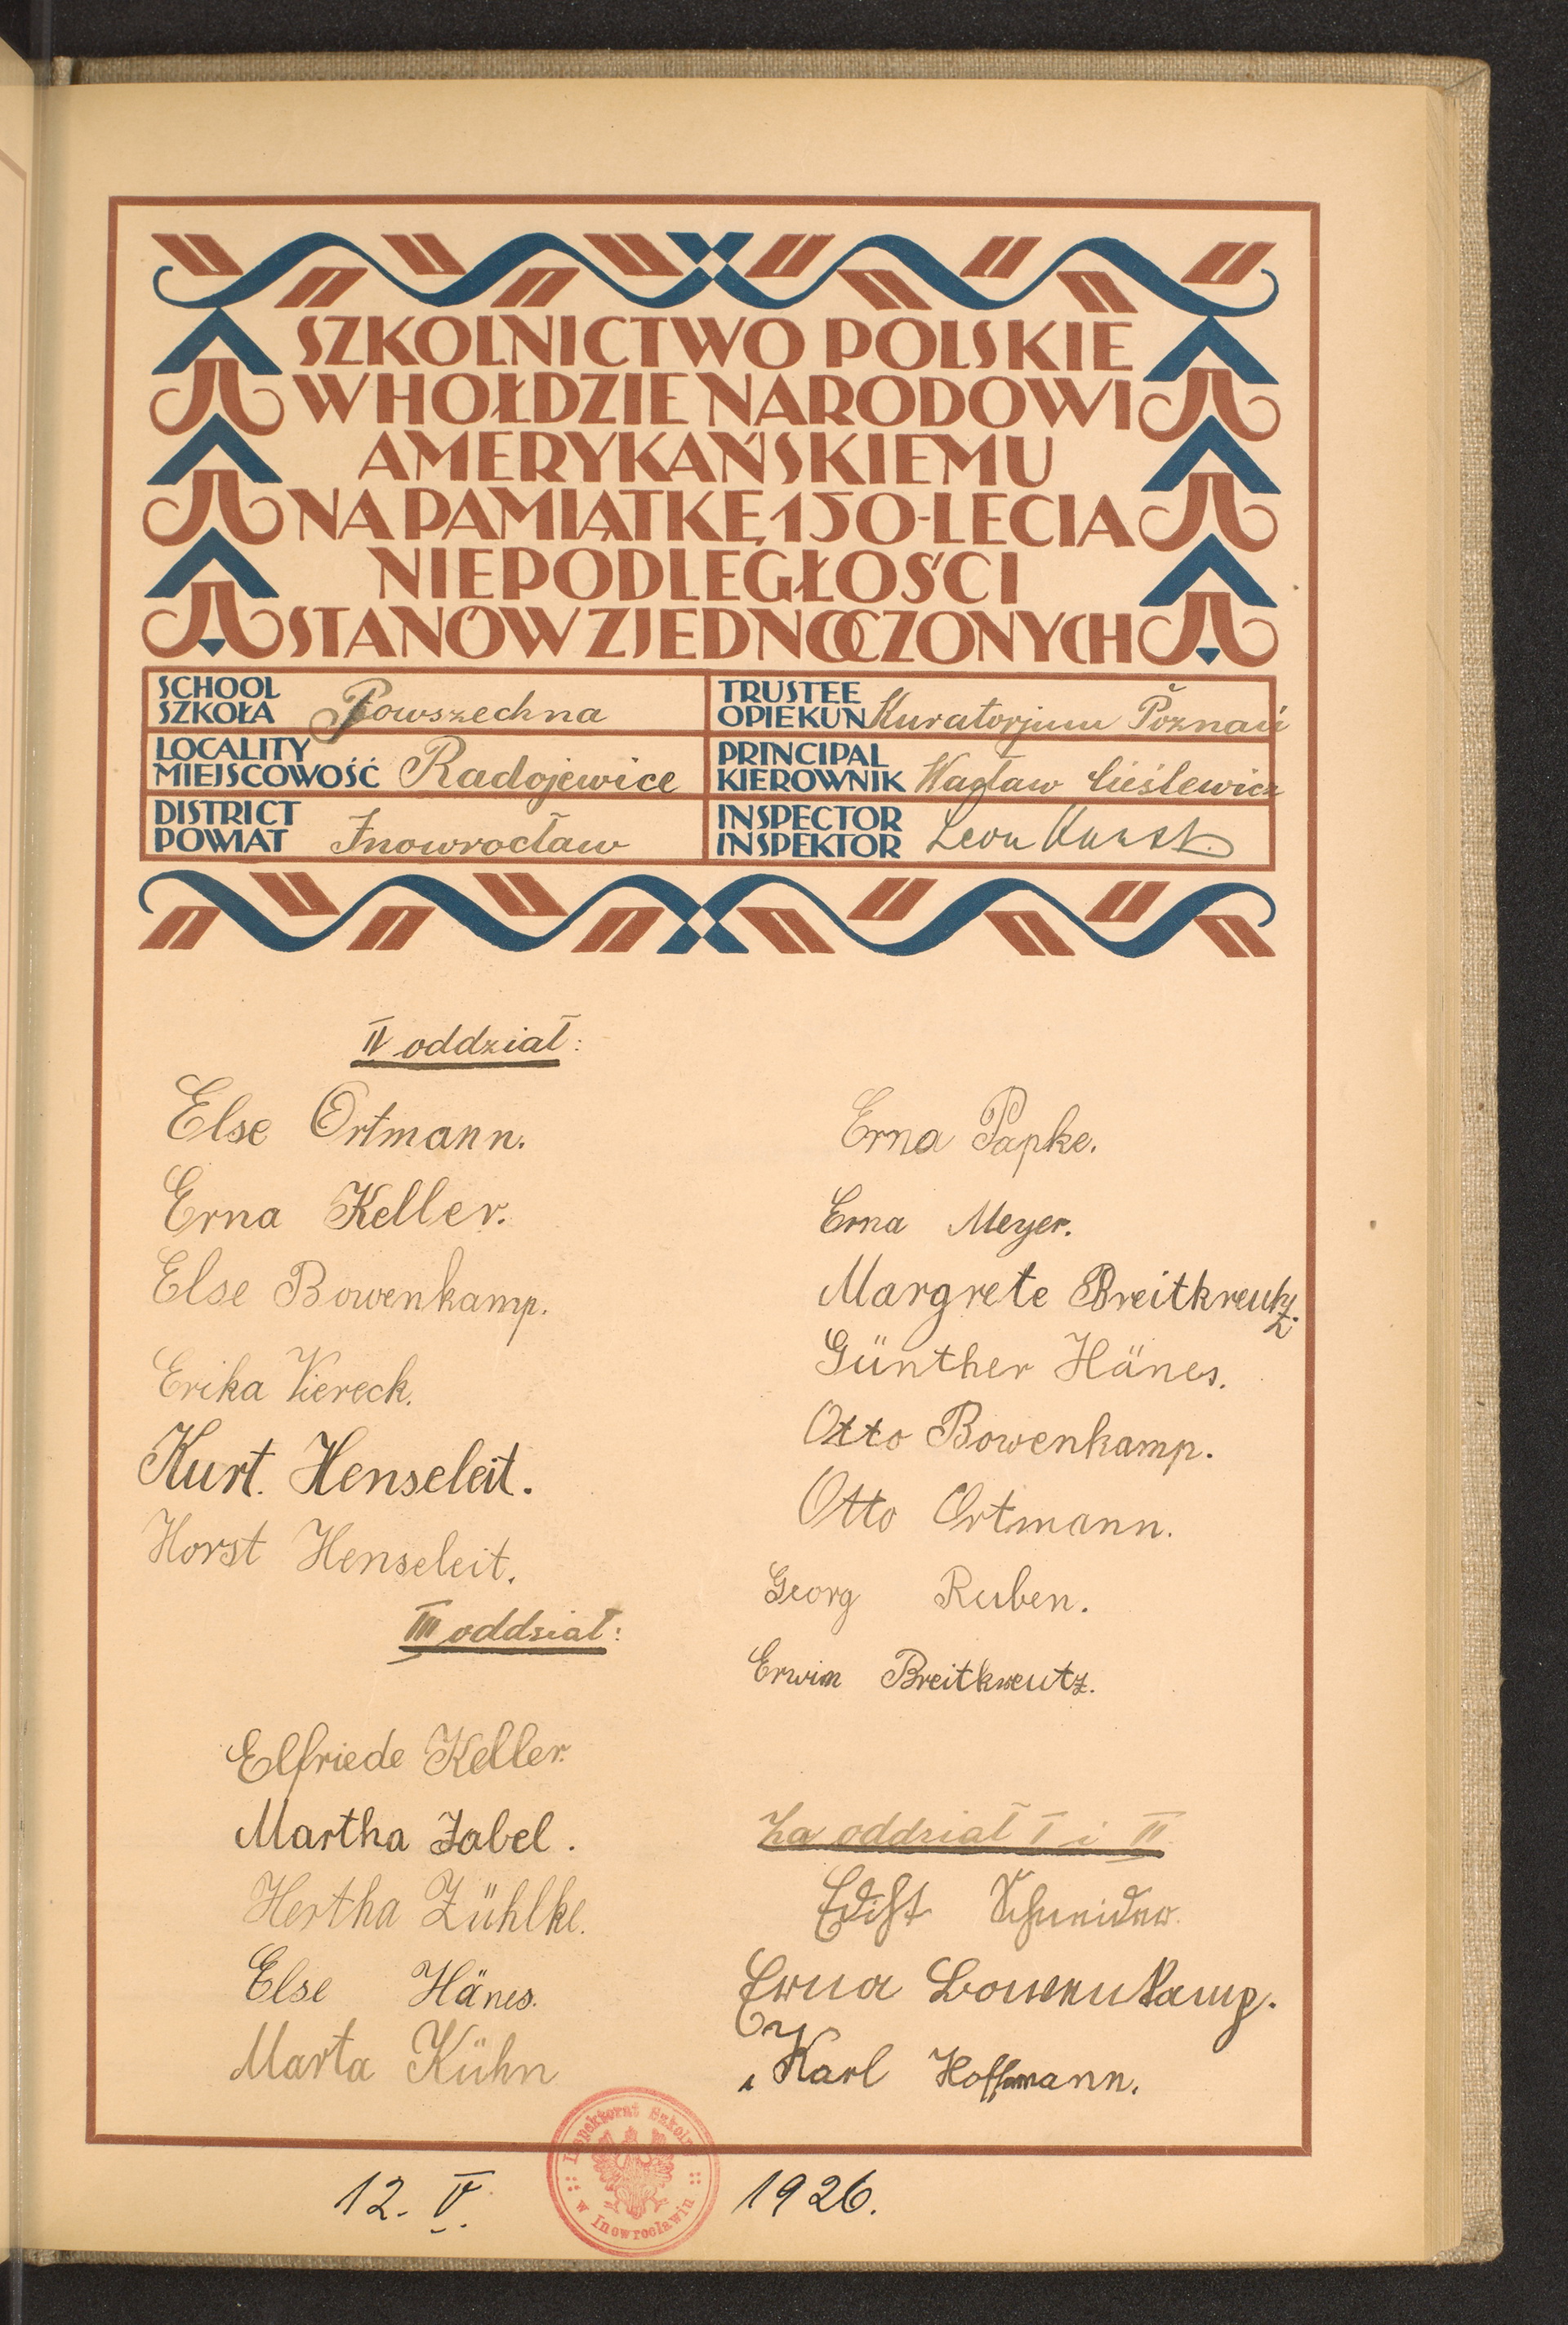 SZKOLNICTWO POLSKIE
W HOŁDZIE NARODOWI
AMERYKAŃSKIEMU
NA PAMIĄTKĘ 150-LECIA
NIEPODLEGŁOŚCI
STANÓW ZJEDNOCZONYCH
SCHOOL
SZKOŁA Powszechna
LOCALITY
MIEJSCOWOŚĆ Radojewice
DISTRICT
POWIAT Inowrocław
TRUSTEE
OPIEKUN Kuratorjum Poznań
PRINCIPAL
KIEROWNIK Wacław Cieślewicz
INSPECTOR
INSPEKTOR Leon
IV oddział:
Else Ortmann.
Erna Keller.
Else Bowenkamp.
Erika Viereck.
Kurt. Henseleit.
Horst Henseleit.
III oddział:
Elfriede Keller.
Martha Zabel.
Hertha Zühlke.
Else Hänes.
Marta Kühn
Erna Papke.
Erna Meyer.
Margrete Breitkreutz.
Günther Hänes.
Otto Bowenkamp.
Otto Ortmann.
Georg Ruben.
Erwin Breitkreutz.
Za oddział I i II
Edith Schneider.
Erna Bowenkamp.
i Karl Hoffmann.
Inspektorat Szkolny
w Inowrocławiu
12. V. 1926.